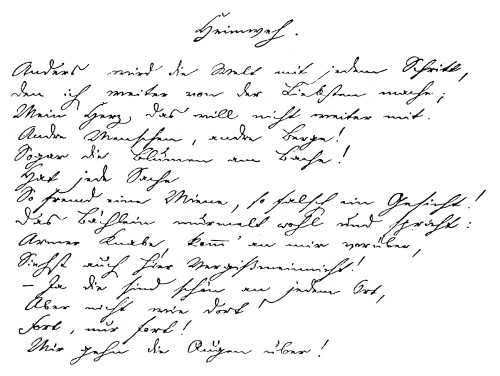 Heimweh.
Anders wird die Welt mit jedem Schritt,
den ich weiter von der Liebsten mache;
Mein Herz, das will nicht weiter mit.
Andre Menschen, andre Berge!
Sogar die Blumen am Bache!
Hat jede Sache
So fremd eine Miene, so falsch ein Gesicht!
Das Bächlein murmelt wohl und spricht:
Armer Knabe, komm' an mir vorüber,
Siehst auch hier Vergißmeinnicht!
– Ja die sind schön an jedem Ort,
Aber nicht wie dort!
Fort, nur fort!
Mir gehn die Augen über!